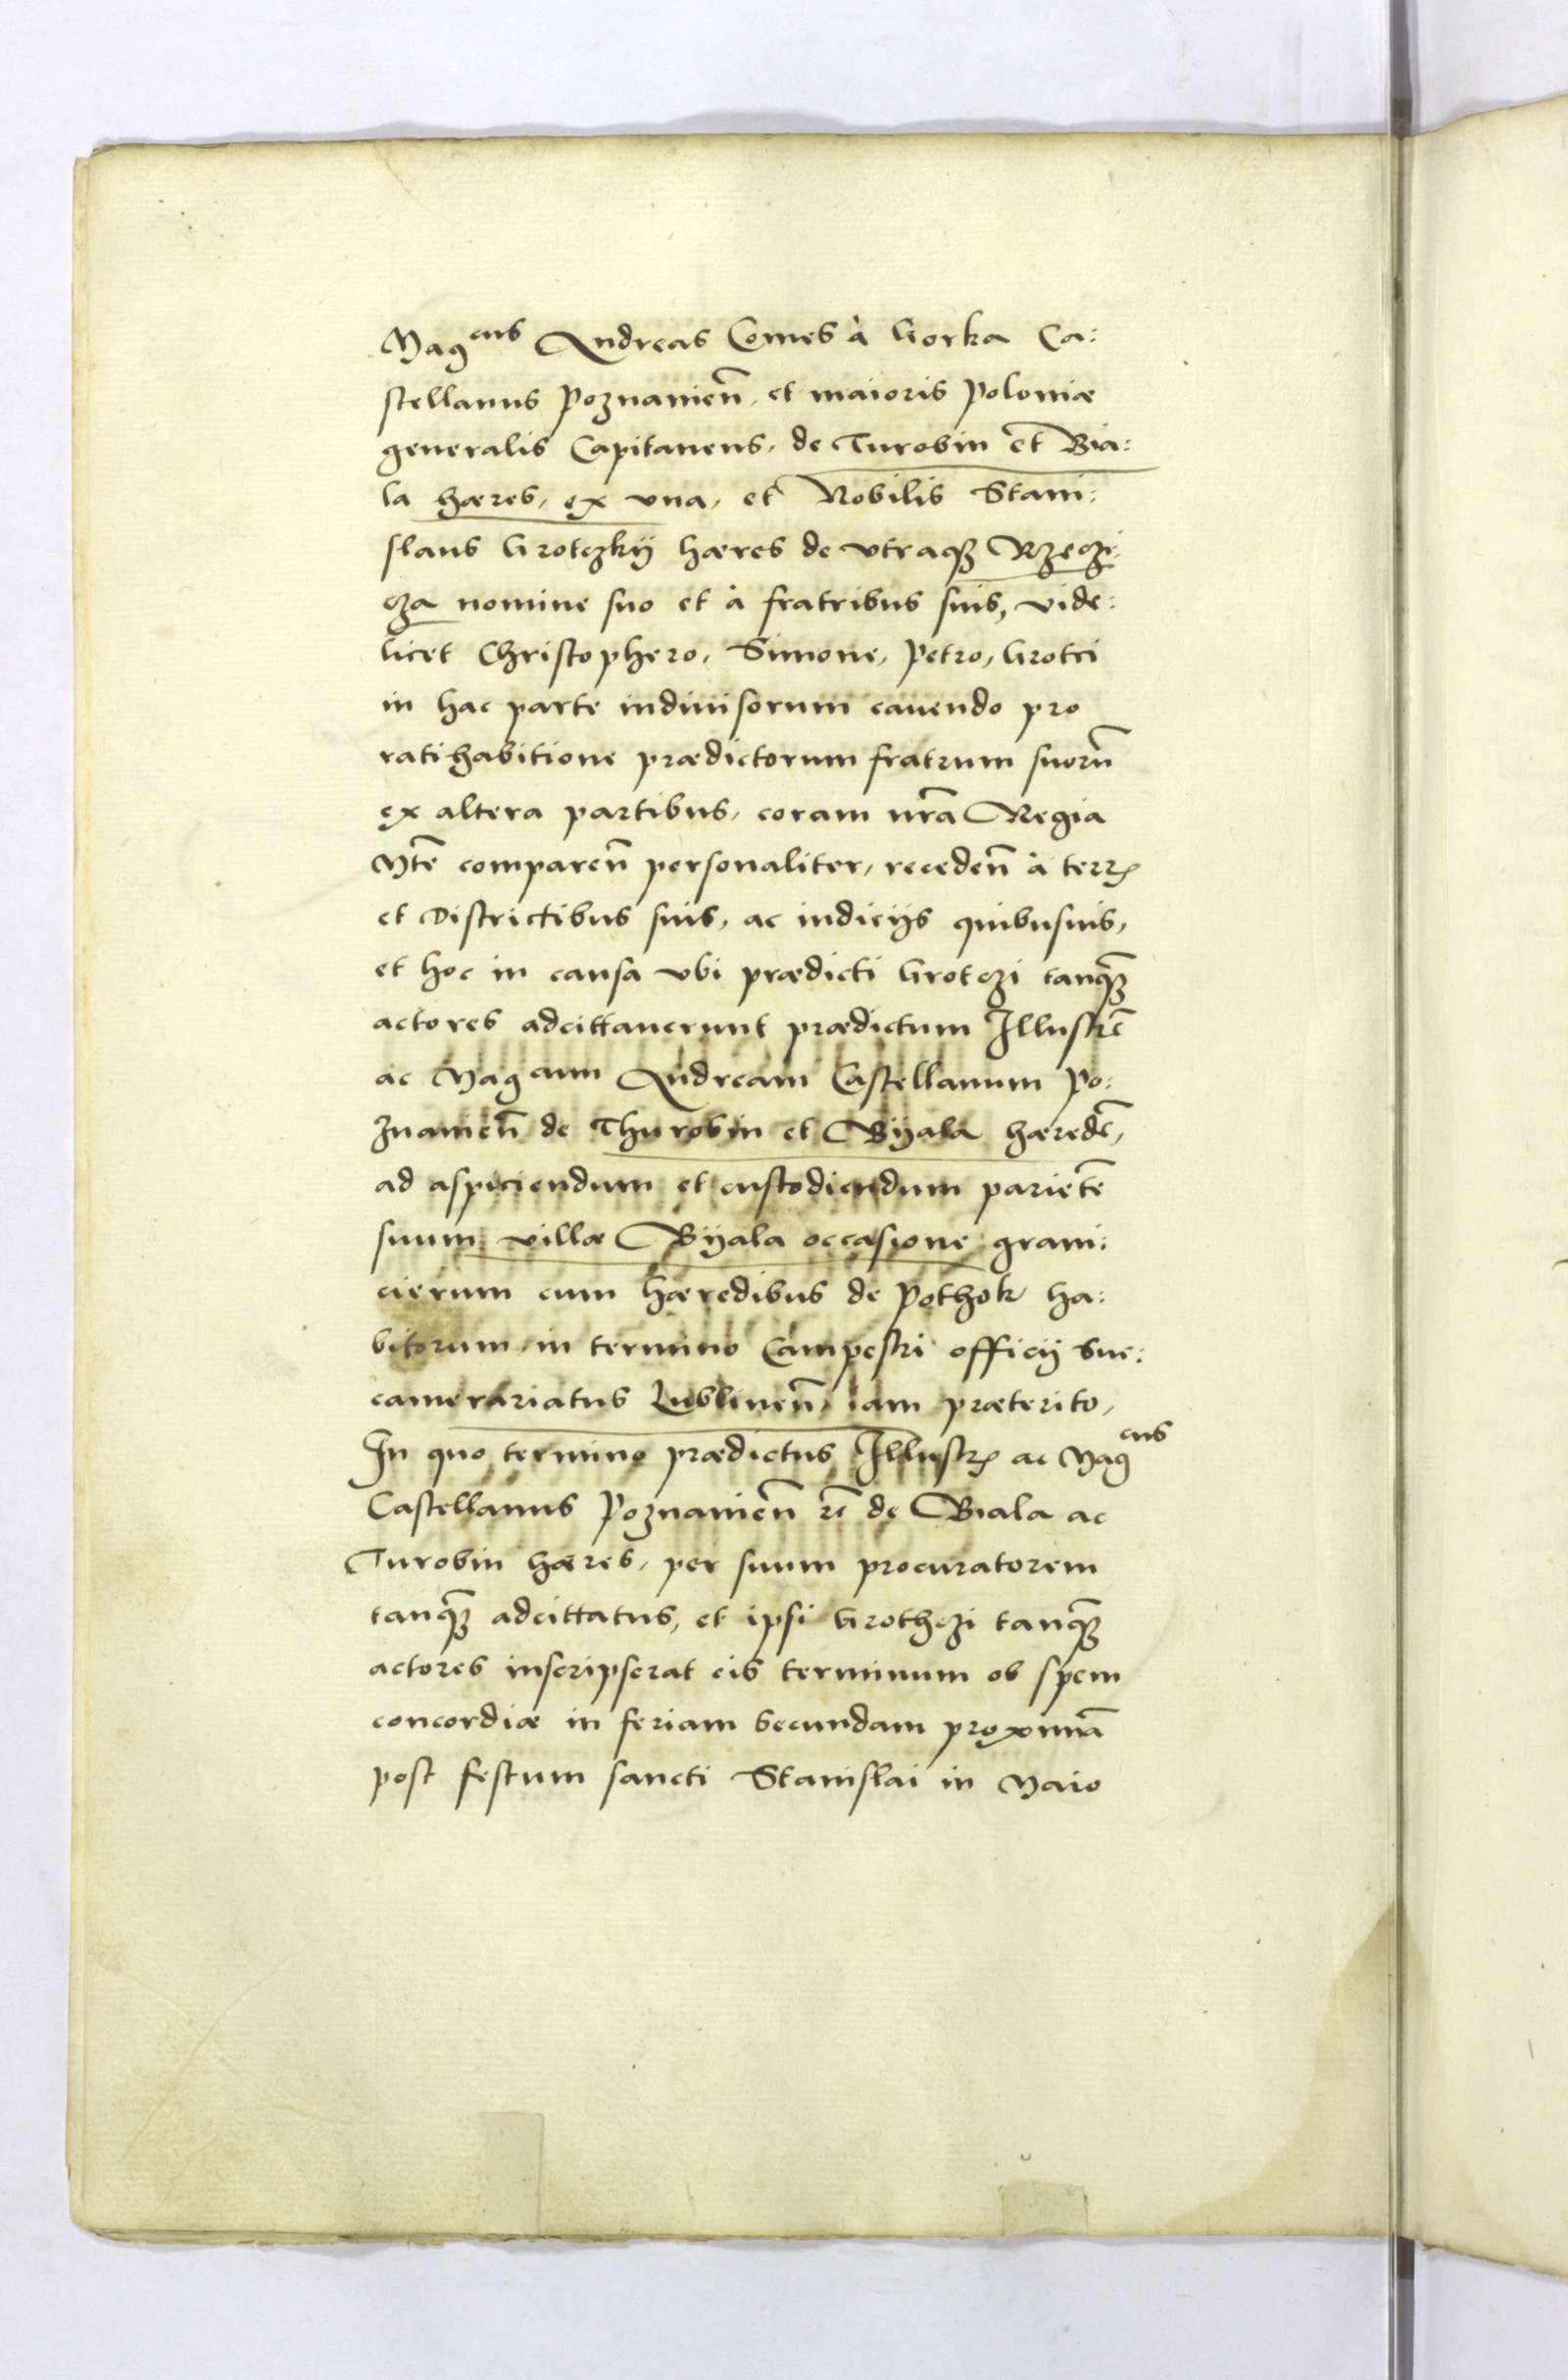 Mag^cus Andreas Comes à Gorka Ca:
stellanus Poznanien̄, et maioris Poloniæ
generalis Capitaneus, de Turobin et Bia:
la hæres, ex vna, et Nobilis Stani:
slaus Grotczkij hæres de vtraqʒ Rzeczi:
cza nomine suo et à fratribus suis, vide:
licet Christophero, Simone, Petro, Grotci
in hac parte indiuisorum cauendo pro
ratihabitione prædictorum fratrum suorū
ex altera partibus, coram nr̄a Regia
Mte̅ comparen̄ personaliter, receden̄ à terrꝭ
et Districtibus suis, ac iudicijs quibusuis,
et hoc in causa vbi prædicti Grotczi tanqʒ
actores adcittauerunt prædictum Illustrē
ac Mag^cum Andream Castellanum Po:
znanien̄ de Thurobin et Bijala hæredē,
ad aspiciendum et custodiendum parietē
suum villæ Bijala occasione grani:
cierum cum hæredibus de Pothok ha:
bitorum, in termino Campestri officij Suc:
camerariatus Lublinen̄, iam præterito,
In quo termino prædictus Illustrꝭ ac Mag^cus
Castellanus Poznanien̄ rc̄ de Biala ac
Turobin hæres, per suum procuratorem
tanqʒ adcittatus, et ipsi Grothczi tanqʒ
actores inscripserat eis terminum ob spem
concordiæ in feriam secundam proximā
post festum sancti Stanislai in Maio